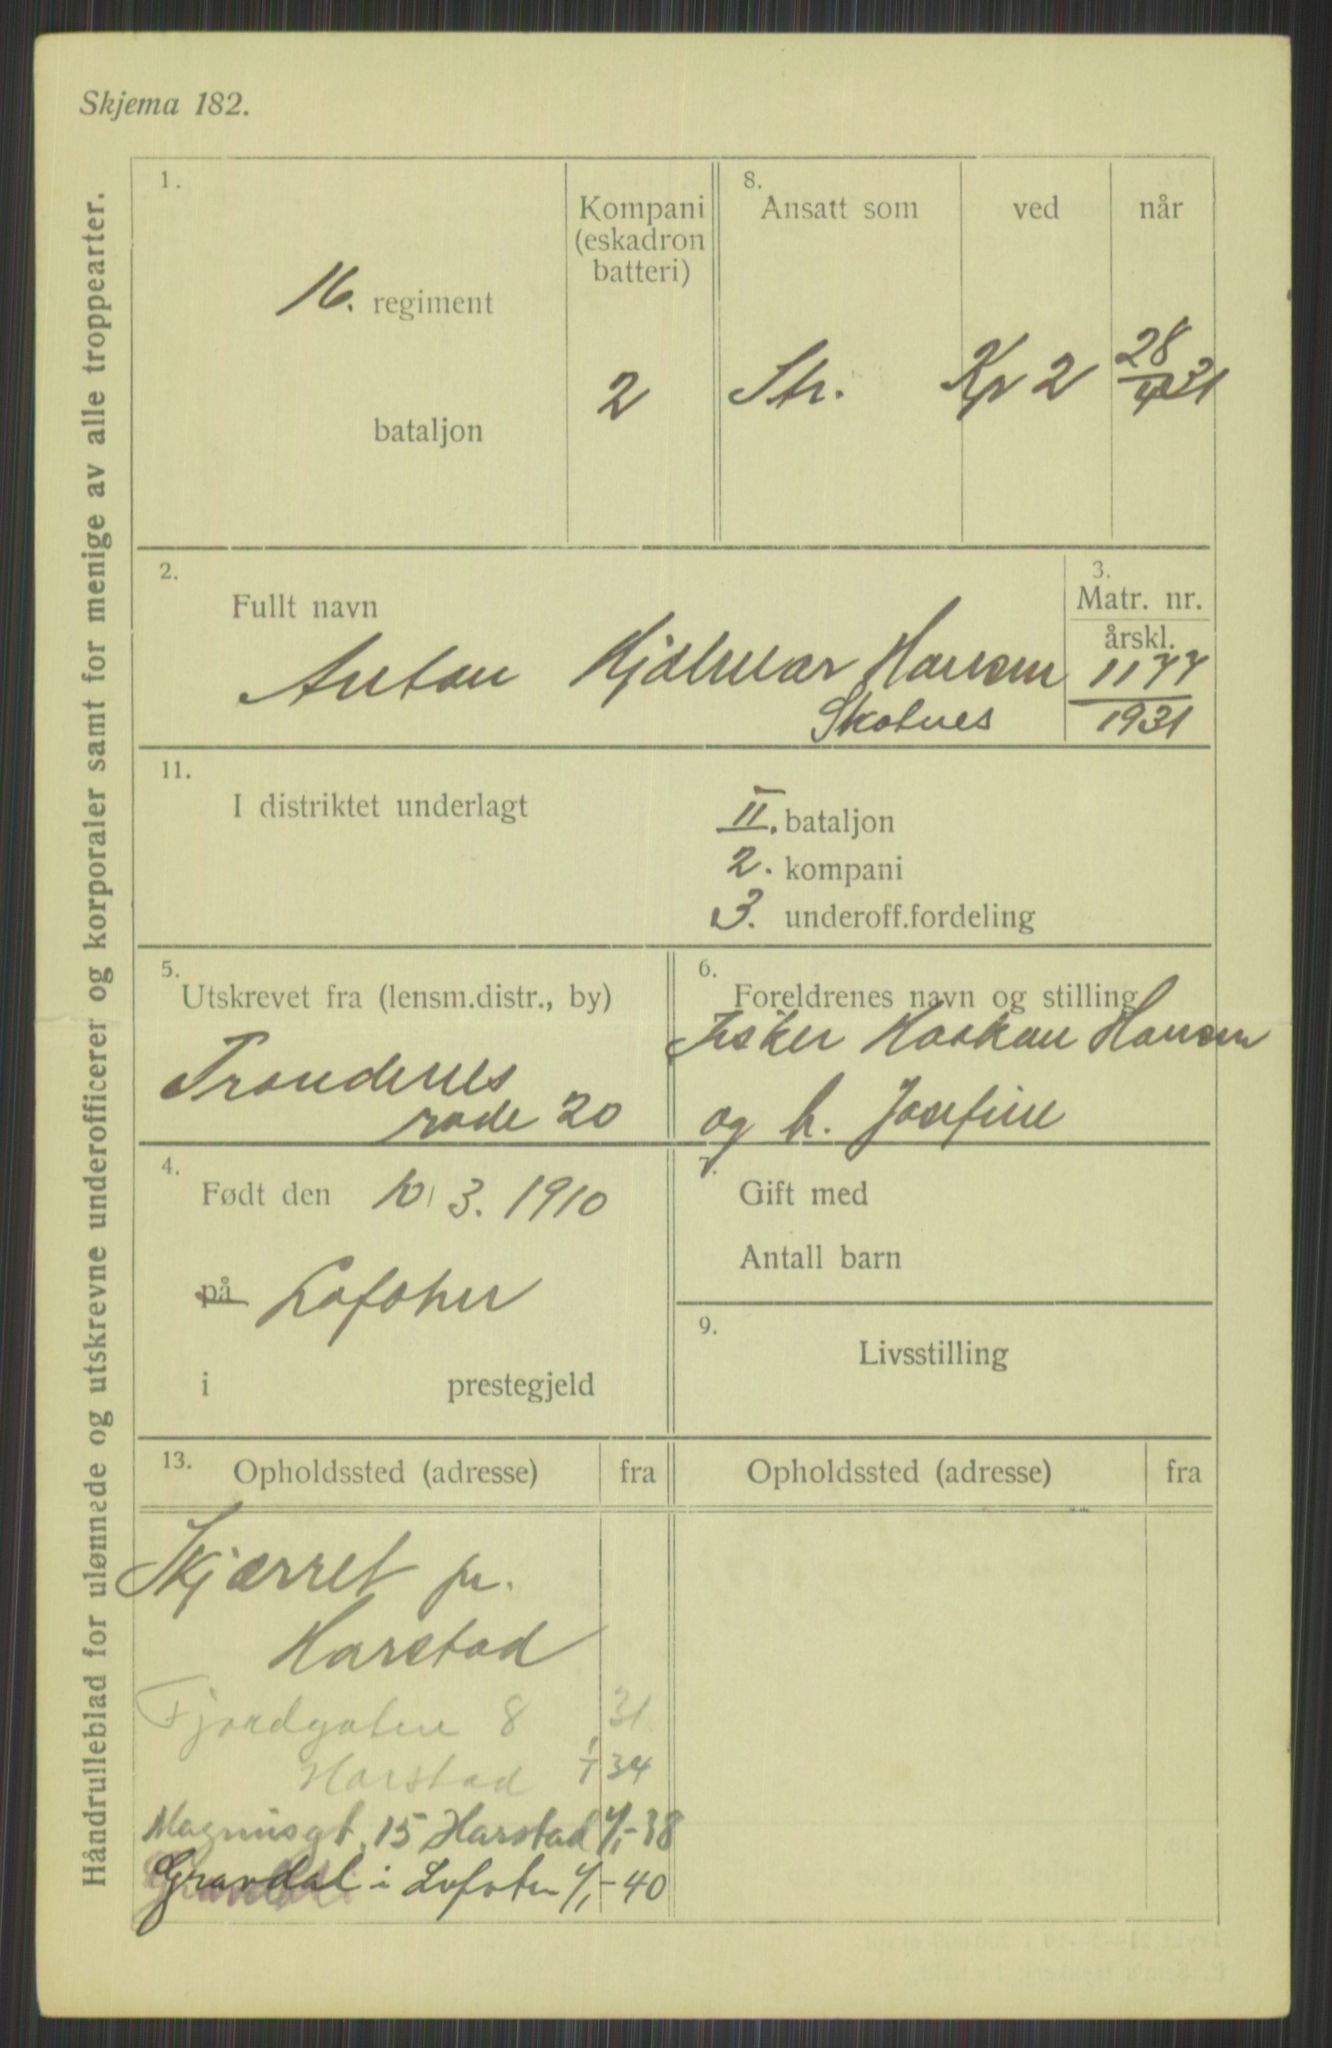 Skjema 182.
Håndrulleblad for ulønnede og utskrevne underofficerer og korporaler samt for menige av alle troppearter.
1.
16. regiment
bataljon
Kompani
(eskadron
batteri)
2
8.
Ansatt som
ved
når
Str.
Kp 2
28/4 31
2.
Fullt navn
Anton Hjalmar Hansen
Skotnes
3.
Matr. nr.
årskl.
1177
1931
11.
I distriktet underlagt
II. bataljon
2. kompani
3. underoff.fordeling
5.
Utskrevet fra (lensm.distr., by)
Trondenes
rode 20
6.
Foreldrenes navn og stilling
Fisker Haakan Hansen
og h. Josefine
4.
Født den 10/3. 1910
på Lofoten
i prestegjeld
7.
Gift med
Antall barn
9.
Livsstilling
13.
Opholdssted (adresse)
fra
Opholdssted (adresse)
fra
Skjærret pr.
Harstad
Fjordgaten 8 31
Harstad 34
Magnusgt. 15 Harstad 4/1-38
Gravdal i Lofoten 4/1-40